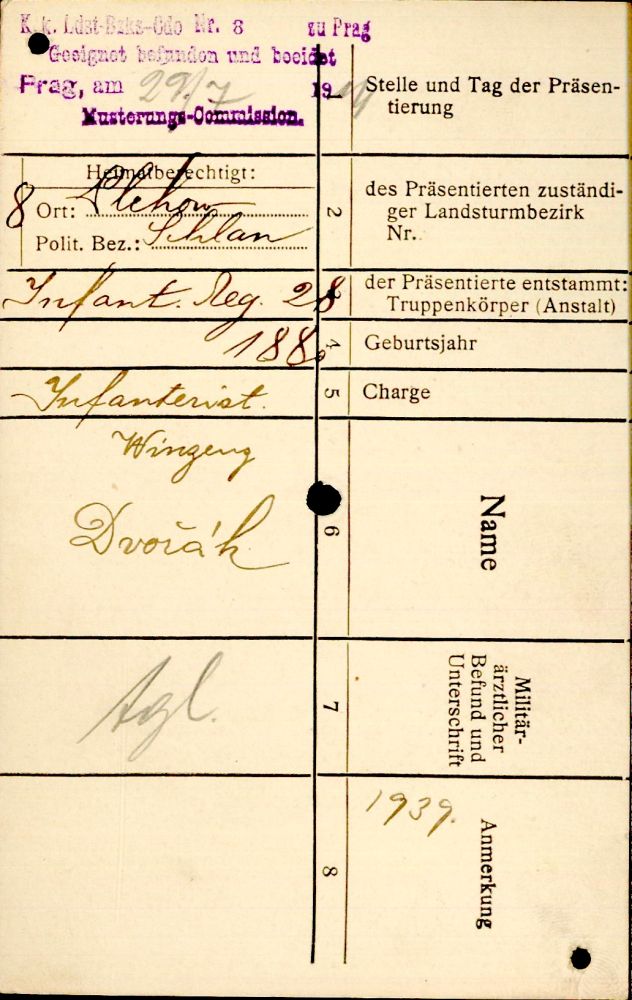 K. k. Ldst-Bzks-Cdo Nr. 8 zu Prag
Geeignet befunden und beeidet
Prag, am 29/7 19
Musterungs-Commission.
1
Stelle und Tag der Präsen-
tierung
Heimatberechtigt:
8
Ort: Plchow
Polit. Bez.: Schlan
2
des Präsentierten zuständi-
ger Landsturmbezirk
Nr.
Infant. Reg. 28
3
der Präsentierte entstammt:
Truppenkörper (Anstalt)
188
4
Geburtsjahr
Infanterist.
5
Charge
Winzenz
Dvořák
6
Name
tgl.
7
Militär-
ärztlicher
Befund und
Unterschrift
1939.
8
Anmerkung